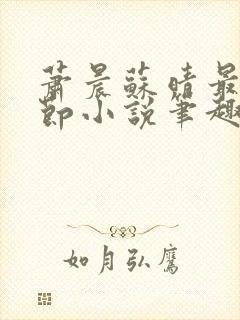 蕭晨蘇晴最
節小說筆趣
如月弘鷹